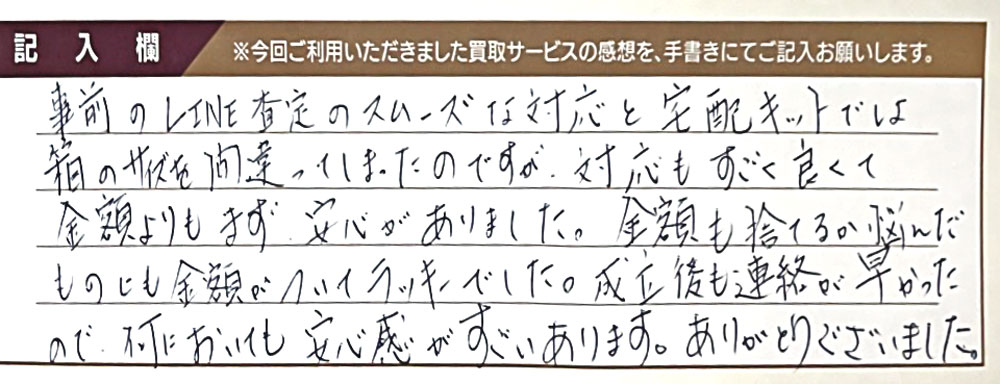 記入欄
※今回ご利用いただきました買取サービスの感想を、手書きにてご記入お願いします。
事前のLINE査定のスムーズな対応と宅配キットでは
箱のサイズを間違ってしまったのですが、対応もすごく良くて
金額よりもまず、安心がありました。金額も捨てるか悩んだ
ものにも金額がついてラッキーでした。成立後も連絡が早かった
ので、何においても安心感がすごいあります。ありがとうございました。